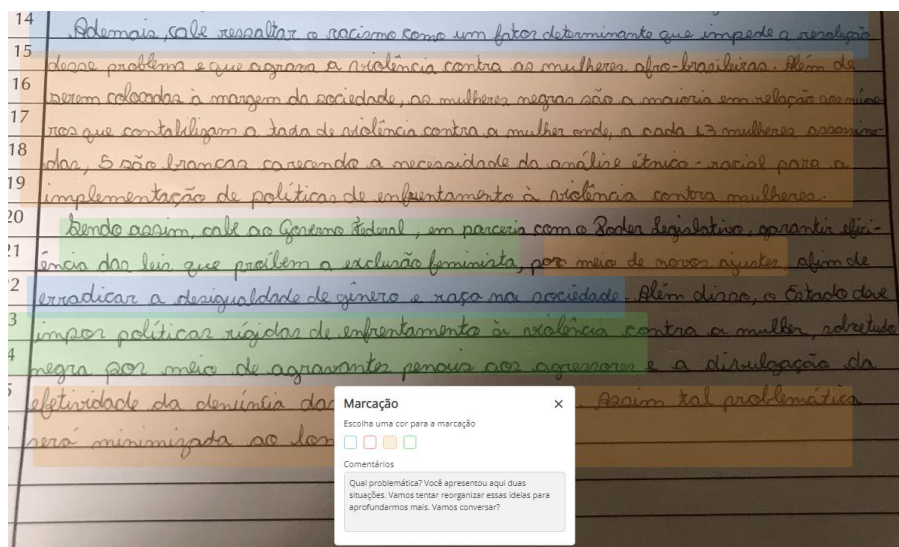 14 Ademais, cabe ressaltar o racismo como um fator determinante que impede a resolução
15 desse problema e que agrava a violência contra as mulheres afro-brasileiras. Além de
16 serem colocadas à margem da sociedade, as mulheres negras são a maioria em relação aos núme-
17 ros que contabilizam a taxa de violência contra a mulher onde, a cada 13 mulheres assassina-
18 das, 5 são brancas carecendo a necessidade da análise étnico-racial para a
19 implementação de políticas de enfrentamento à violência contra mulheres.
20 Sendo assim, cabe ao Governo Federal, em parceria com o Poder Legislativo, garantir efici-
21 ência das leis que proíbem a exclusão feminista, por meio de novos ajustes afim de
2 erradicar a desigualdade de gênero e raça na sociedade. Além disso, o Estado deve
3 impor políticas rígidas de enfrentamento à violência contra a mulher, sobretudo
4 negra por meio de agravantes penais aos agressores e a divulgação da
efetividade da denúncia das Assim tal problemática
será minimizada ao lon
Marcação
Escolha uma cor para a marcação
Comentários
Qual problemática? Você apresentou aqui duas
situações. Vamos tentar reorganizar essas ideias para
aprofundarmos mais. Vamos conversar?